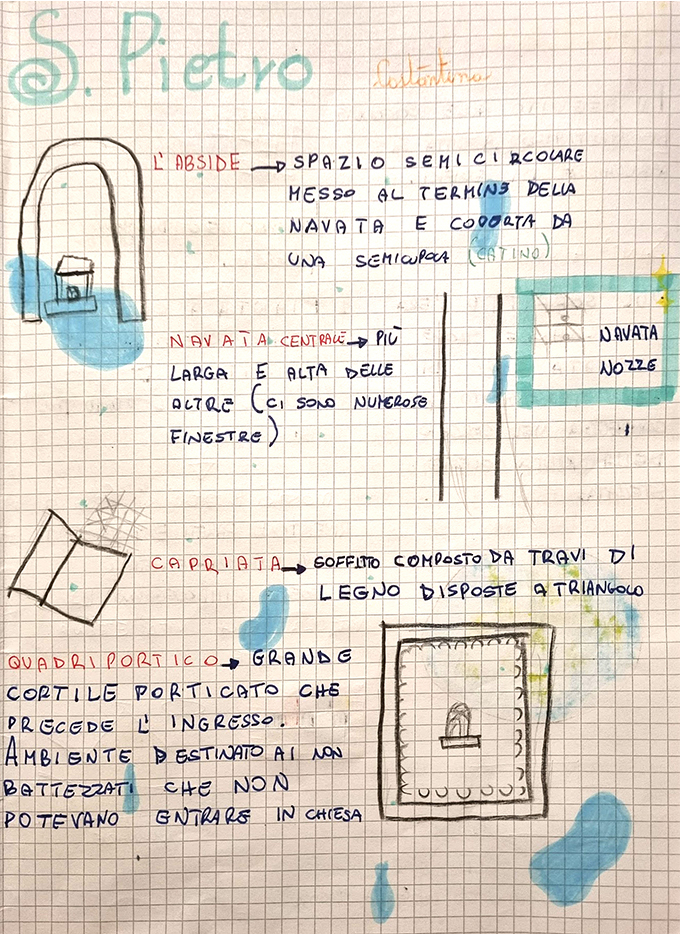 S. Pietro
Costantino
L'ABSIDE → SPAZIO SEMICIRCOLARE
MESSO AL TERMINE DELLA
NAVATA E COPERTA DA
UNA SEMICUPOLA (CATINO)
NAVATA CENTRALE → PIÙ
LARGA E ALTA DELLE
ALTRE (CI SONO NUMEROSE
FINESTRE)
NAVATA
NOZZE
CAPRIATA → SOFFITTO COMPOSTO DA TRAVI DI
LEGNO DISPOSTE A TRIANGOLO
QUADRIPORTICO → GRANDE
CORTILE PORTICATO CHE
PRECEDE L'INGRESSO.
AMBIENTE DESTINATO AI NON
BATTEZZATI CHE NON
POTEVANO ENTRARE IN CHIESA